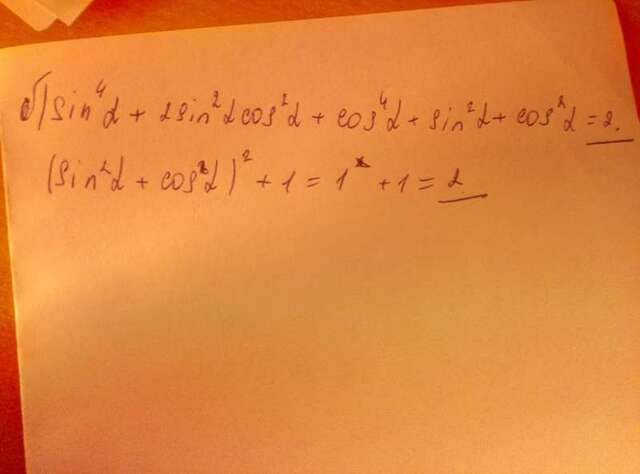 б) sin⁴α + 2sin²α cos²α + cos⁴α + sin²α + cos²α = 2.
(sin²α + cos²α)² + 1 = 1² + 1 = 2